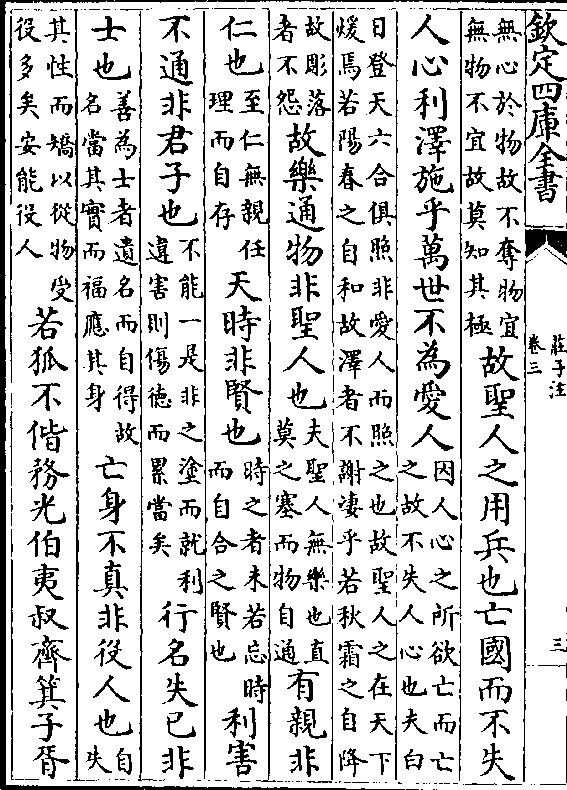 欽定四庫全書
莊子注
卷三
三
無心於物故不奪物宜
無物不宜故莫知其極
故聖人之用兵也亡國而不失
人心利澤施乎萬世不為愛人
因人心之所欲亡而亡
之故不失人心也夫白
日登天六合俱照非愛人而照之也故聖人之在天下
煖焉若陽春之自和故澤者不謝凄乎若秋霜之自降
故彫落
者不怨
故樂通物非聖人也
夫聖人無樂也直
莫之塞而物自通
有親非
仁也
至仁無親任
理而自存
天時非賢也
時之者未若忘時
而自合之賢也
利害
不通非君子也
不能一是非之塗而就利
違害則傷德而累當矣
行名失已非
士也
善為士者遺名而自得故
名當其實而福應其身
亡身不真非役人也
自
失
其性而矯以從物受
役多矣安能役人
若狐不偕務光伯夷叔齊箕子胥